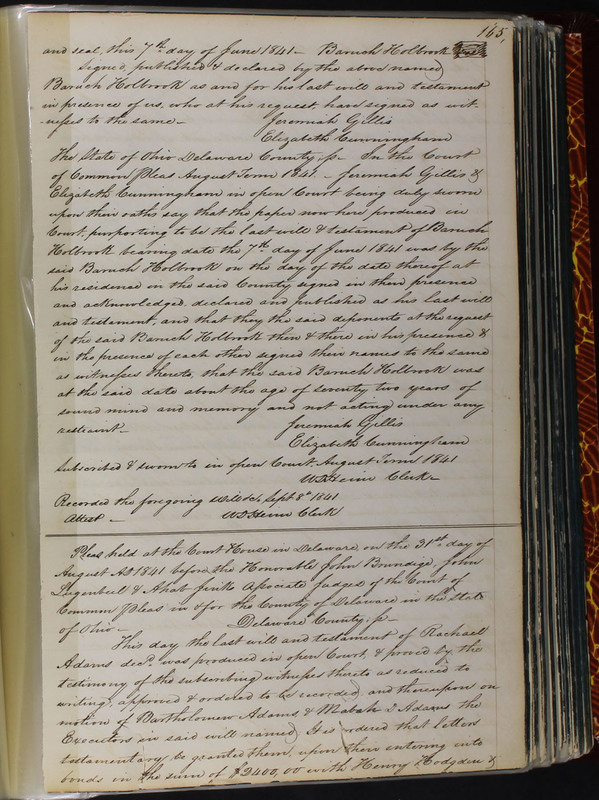 165,
and seal, this 7th day of June 1841 — Baruch Holbrook Seal
Signed, published & declared by the above named
Baruch Holbrook as and for his last will and testament
in presence of us, who at his request have signed as wit-
-nesses to the same —          Jeremiah Gillis
Elizabeth Cunningham
The State of Ohio Delaware County ss — In the Court
of Common Pleas August Term 1841. — Jeremiah Gillis &
Elizabeth Cunningham in open Court being duly sworn
upon their oaths say that the paper now here produced in
Court, purporting to be the last will & testament of Baruch
Holbrook bearing date the 7th day of June 1841 was by the
said Baruch Holbrook on the day of the date thereof at
his residence in the said County signed in their presence
and acknowledged, declared and published as his last will
and testament, and that they the said deponents at the request
of the said Baruch Holbrook then & there in his presence &
in the presence of each other signed their names to the same
as witnesses thereto, that the said Baruch Holbrook was
at the said date about the age of seventy two years of
sound mind and memory and not acting under any
restraint —          Jeremiah Gillis
Elizabeth Cunningham
Subscribed & sworn to in open Court, August Term 1841
Clerk —
Recorded the foregoing Will &c, Sept 8th 1841
Attest —          Clerk
Pleas, held at the Court House in Delaware, on the 31st day of
August AD 1841 before the Honorable John Boundige, John
Lugenbeel & Ahab Jinks Associate Judges of the Court of
Common Pleas in & for the County of Delaware in the State
of Ohio —          Delaware County, ss —
This day the last will and testament of Rachael
Adams decd. was produced in open Court, & proved by the
testimony of the subscribing witnesses thereto as reduced to
writing, approved & ordered to be recorded, and thereupon on
motion of Bartholomew Adams & Adams the
Executors in said will named, It is ordered that letters
testamentary be granted them, upon their entering into
bonds in the sum of $2400,00 with Henry Hodgden &